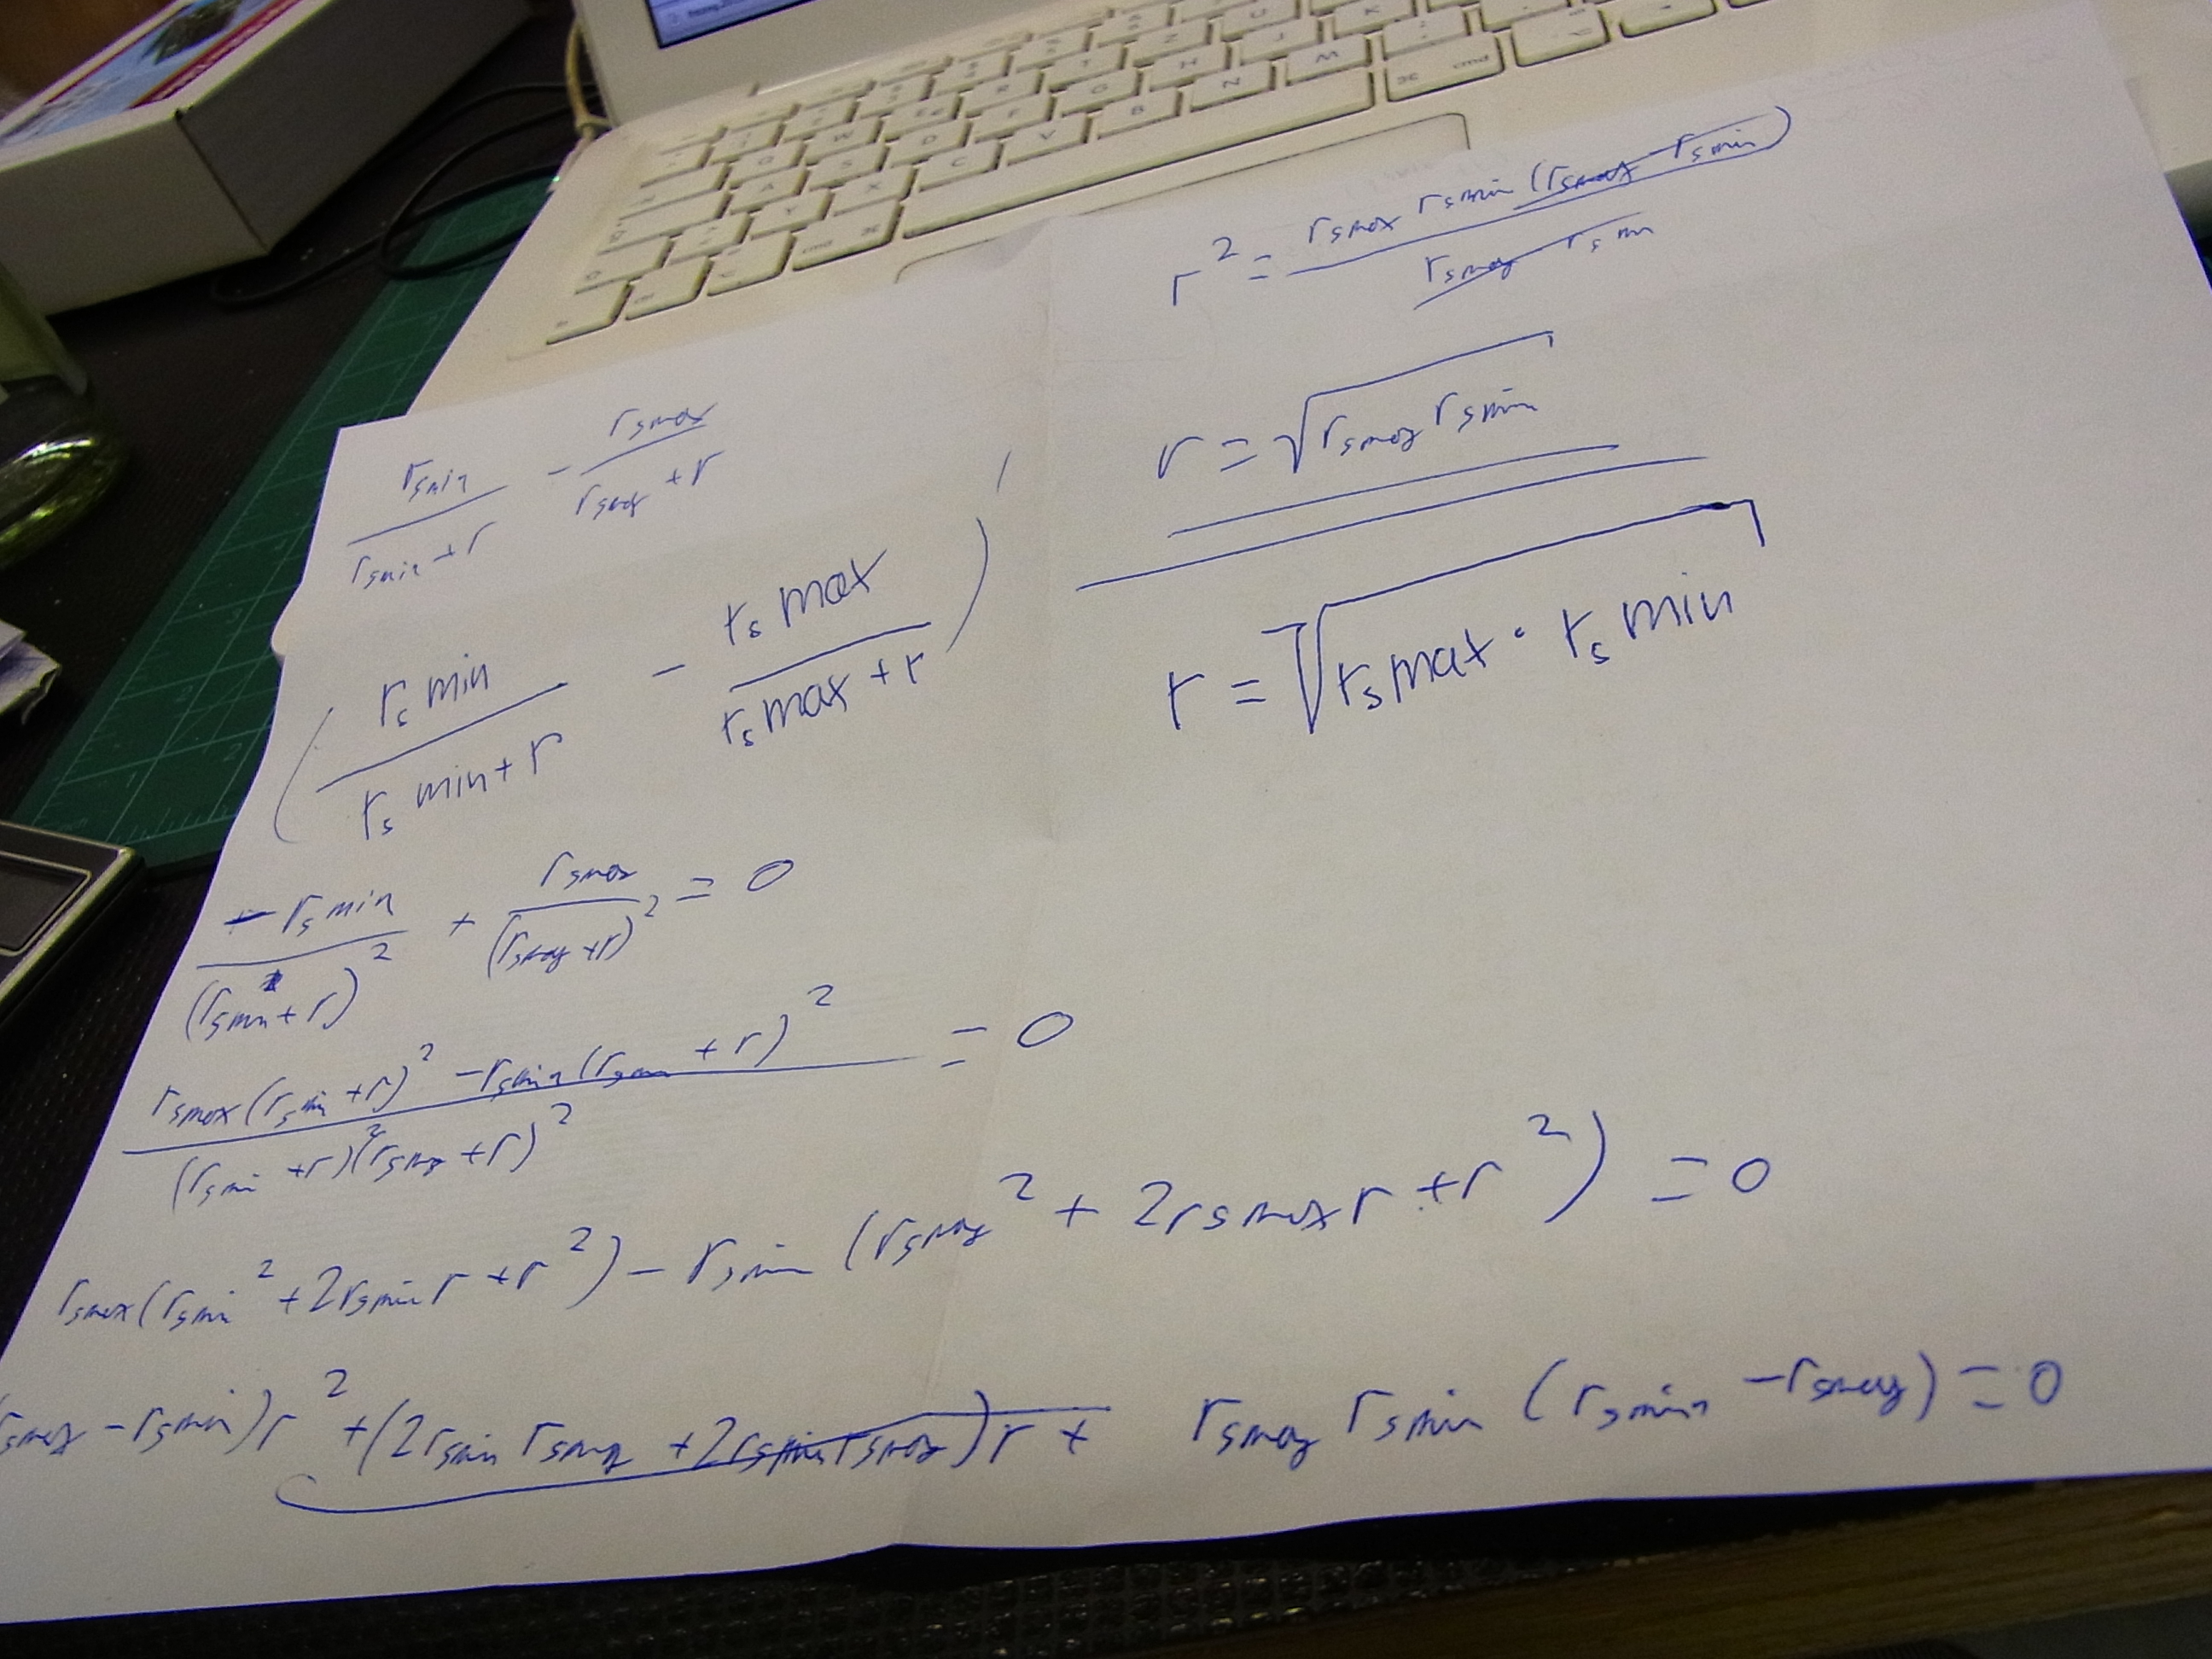 r_smin / (r_smin + r) - r_smax / (r_smax + r)
( r_s min / (r_s min + r) - r_s max / (r_s max + r) )'
- r_s min / (r_smin + r)² + r_smax / (r_smax + r)² = 0
(r_smax (r_smin + r)² - r_smin (r_smax + r)²) / ((r_smin + r)² (r_smax + r)²) = 0
r_smax (r_smin² + 2r_smin r + r²) - r_smin (r_smax² + 2r_smax r + r²) = 0
r_smax - r_smin) r² + (2r_smin r_smax + 2r_smin r_smax) r + r_smax r_smin (r_smin - r_smax) = 0
r² = r_smax r_smin (r_smax - r_smin) / (r_smax - r_smin)
r = √(r_smax r_smin)
r = √(r_s max · r_s min)
cmd
Q W R T
A S D F G H J K
Y X C V B N M
cmd